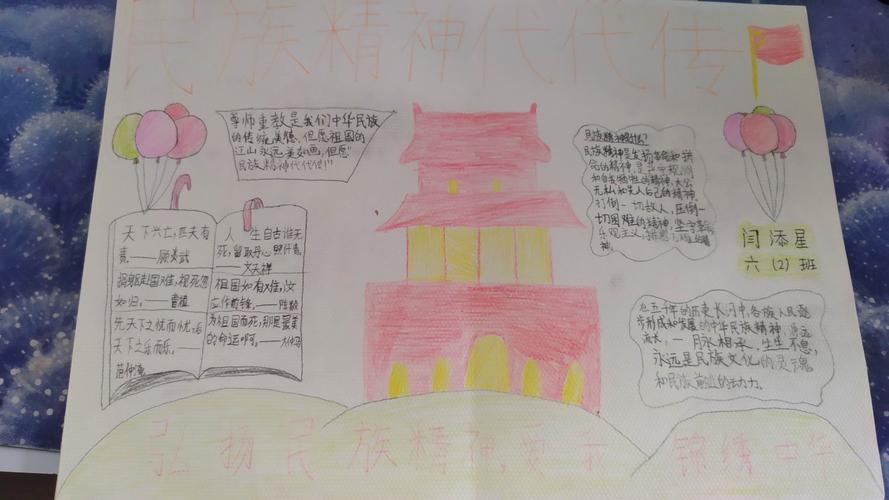 民族精神代代传
尊师重教是我们中华民族
的传统美德,但愿祖国的
江山永远美如画,但愿"
民族精神代代传!"
天下兴亡,匹夫有
责。——顾炎武
捐躯赴国难,视死忽
如归。——曹植
先天下之忧而忧,后
天下之乐而乐。——
范仲淹
人生自古谁无
死,留取丹心照汗青。
——文天祥
祖国如有难,汝
应作前锋。——陈毅
为祖国而死,那是最美
的命运啊。——大仲马
民族精神是什么?
民族精神是发扬革命和拼
命的精神,是
和自我牺牲的精神,大公
无私和先人后己的精神,
打倒一切敌人,压倒一
切困难的精神,坚守革命
乐观主义,排除万难
神。
闫添星
六(2)班
在五千年的历史长河中,各族人民逐
步形成和发展的中华民族精神,源远
流长,一脉相承,生生不息,
永远是民族文化的灵魂
和民族前进的动力。
弘扬民族精神,爱我锦绣中华